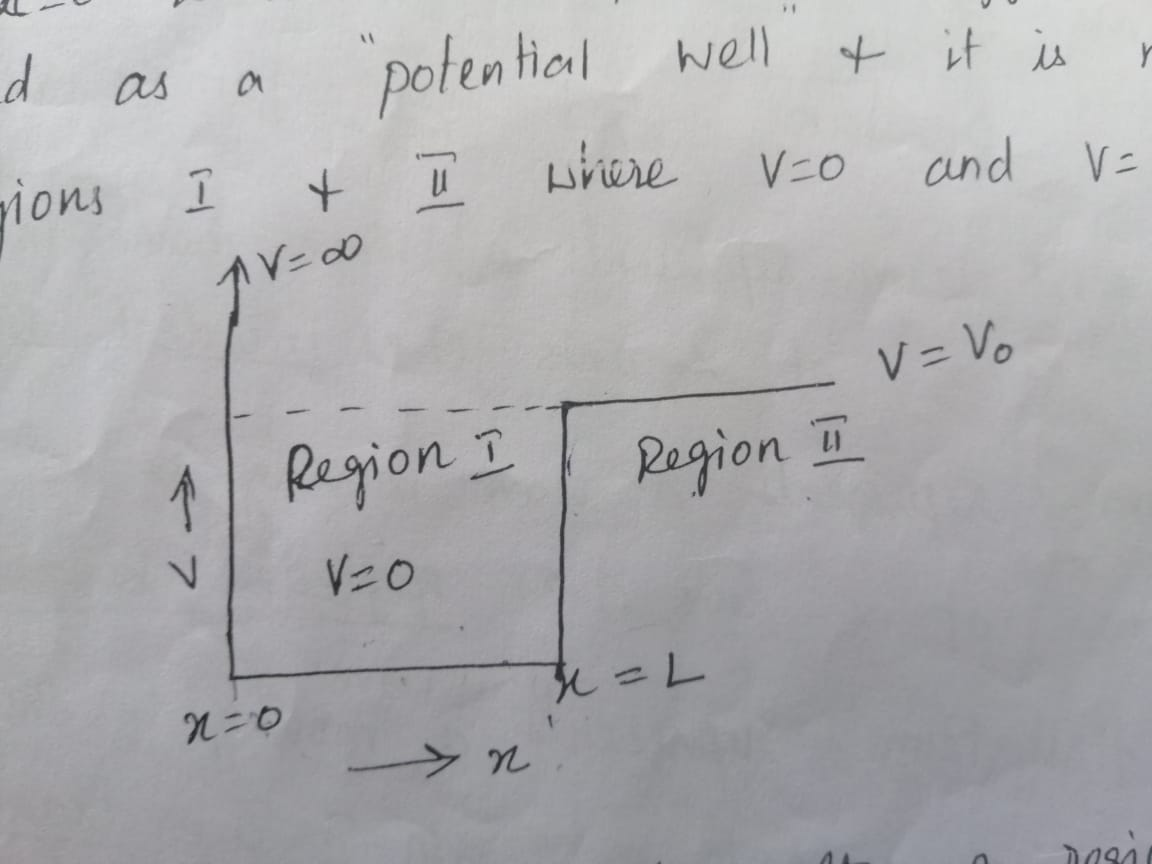 as a "potential well" + it is
I + II where V=0 and V=
V=∞
V=V₀
Region I Region II
V=0
V
x=L
x=0
x